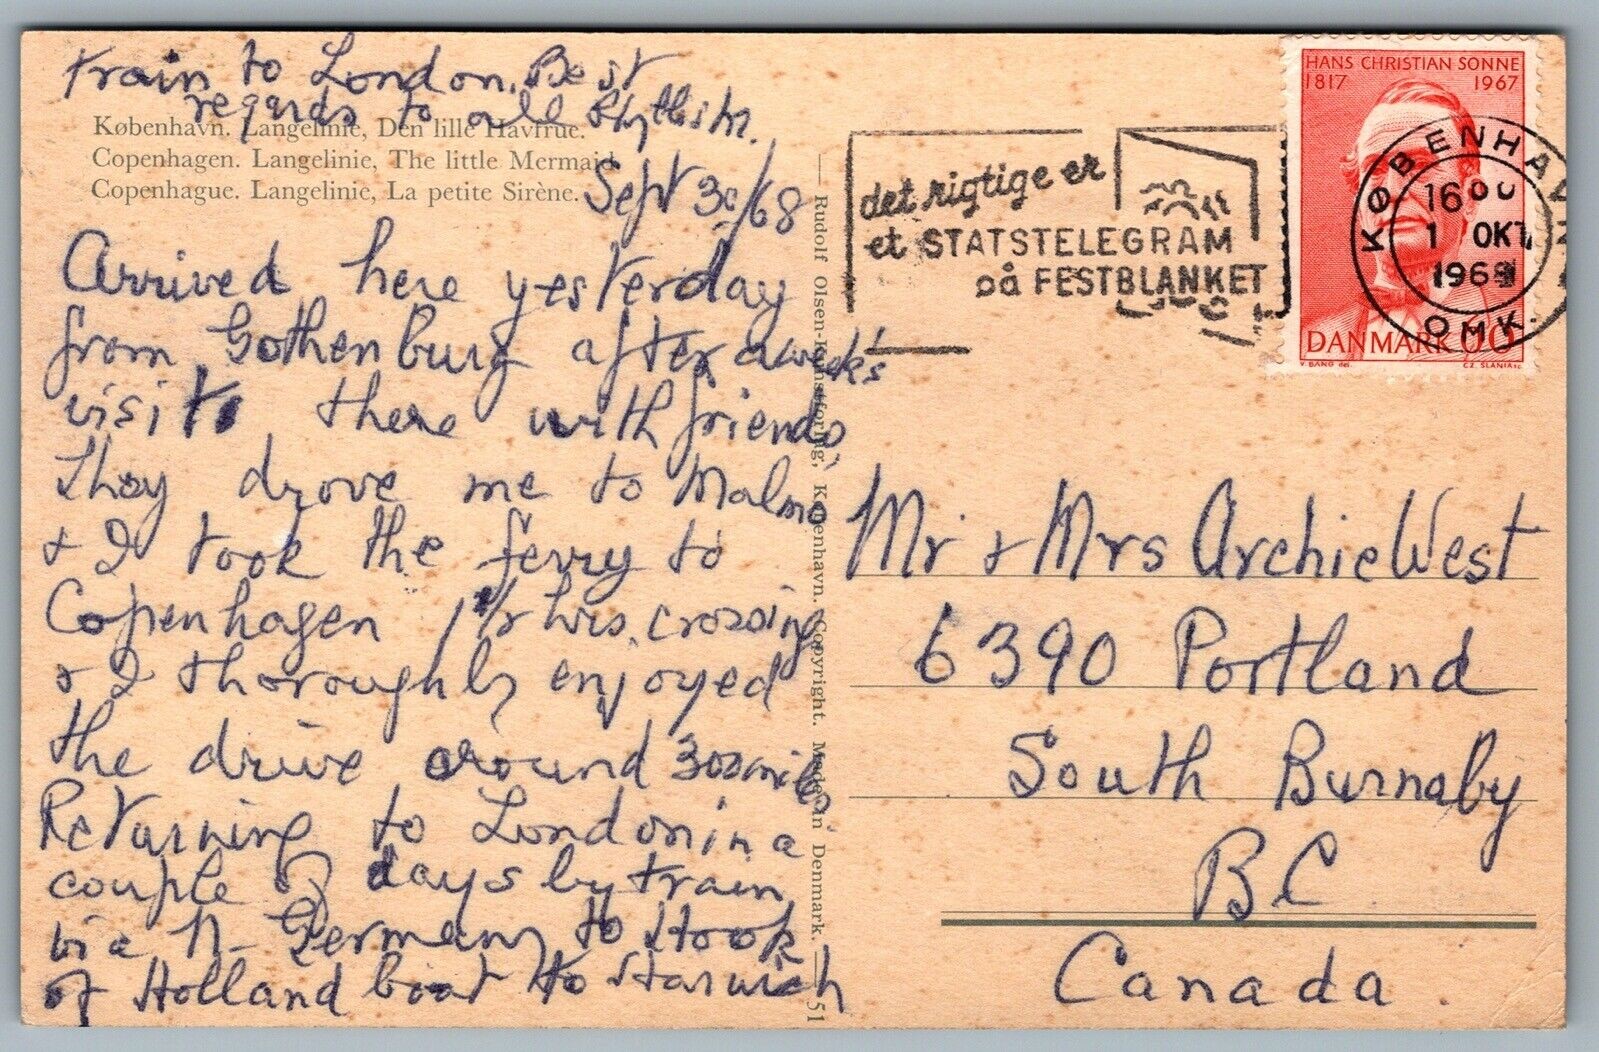 train to London. Best
regards to all Phyllis M.
København. Langelinie, Den lille Havfrue.
Copenhagen. Langelinie, The little Mermaid.
Copenhague. Langelinie, La petite Sirène.
Sept 30/68
Arrived here yesterday
from Gothenburg after a week's
visit there with friends
They drove me to Malmo
& I took the ferry to
Copenhagen 1 1/2 hrs. crossing
& I thoroughly enjoyed
the drive around 300 miles
Returning to London in a
couple of days by train
via N- Germany to Hook
of Holland boat to Harwich
Rudolf Olsen-Kunstforlag, København. Copyright. Made in Denmark. 51
det rigtige er
et STATSTELEGRAM
på FESTBLANKET
HANS CHRISTIAN SONNE
1817 1967
KØBENHAVN
1600
1 OKT
1968
OMK.
DANMARK 60
V. BANG del. CZ. SLANIA sc.
Mr & Mrs Archie West
6390 Portland
South Burnaby
BC
Canada